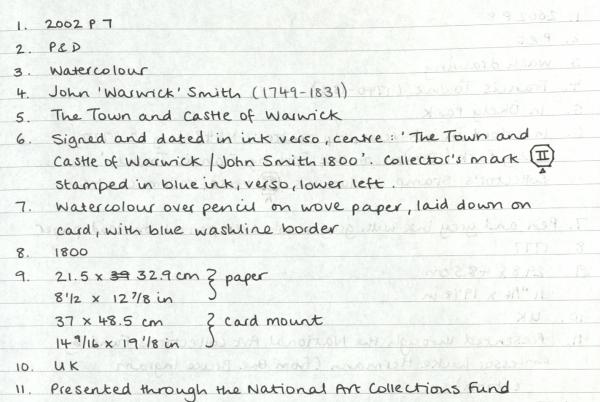 1. 2002 P 7
2. P&D
3. Watercolour
4. John 'Warwick' Smith (1749-1831)
5. The Town and Castle of Warwick
6. Signed and dated in ink verso, centre : 'The Town and
Castle of Warwick / John Smith 1800'. Collector's mark II
stamped in blue ink, verso, lower left.
7. Watercolour over pencil on wove paper, laid down on
card, with blue washline border
8. 1800
9. 21.5 x 39 32.9 cm } paper
8 1/2 x 12 7/8 in
37 x 48.5 cm } card mount
14 9/16 x 19 1/8 in
10. UK
11. Presented through the National Art Collections Fund